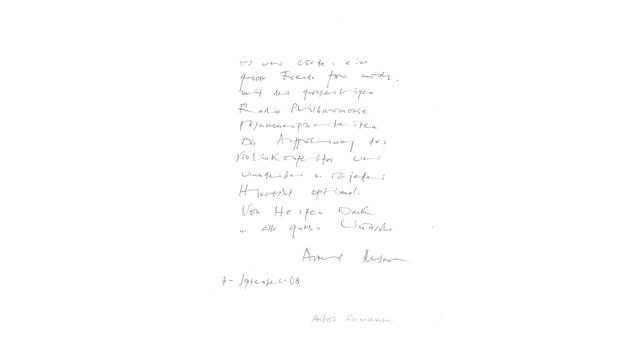 Es war eine
große Freude für mich,
mit der großartigen
Radio Philharmonie
zusammenzuarbeiten
Die Aufführung des
Violinkonzertes war
wunderbar u. in jeder
Hinsicht optimal.
Von Herzen Dank
u. alle guten Wünsche
Aribert Reimann
7. September 08
Aribert Reimann